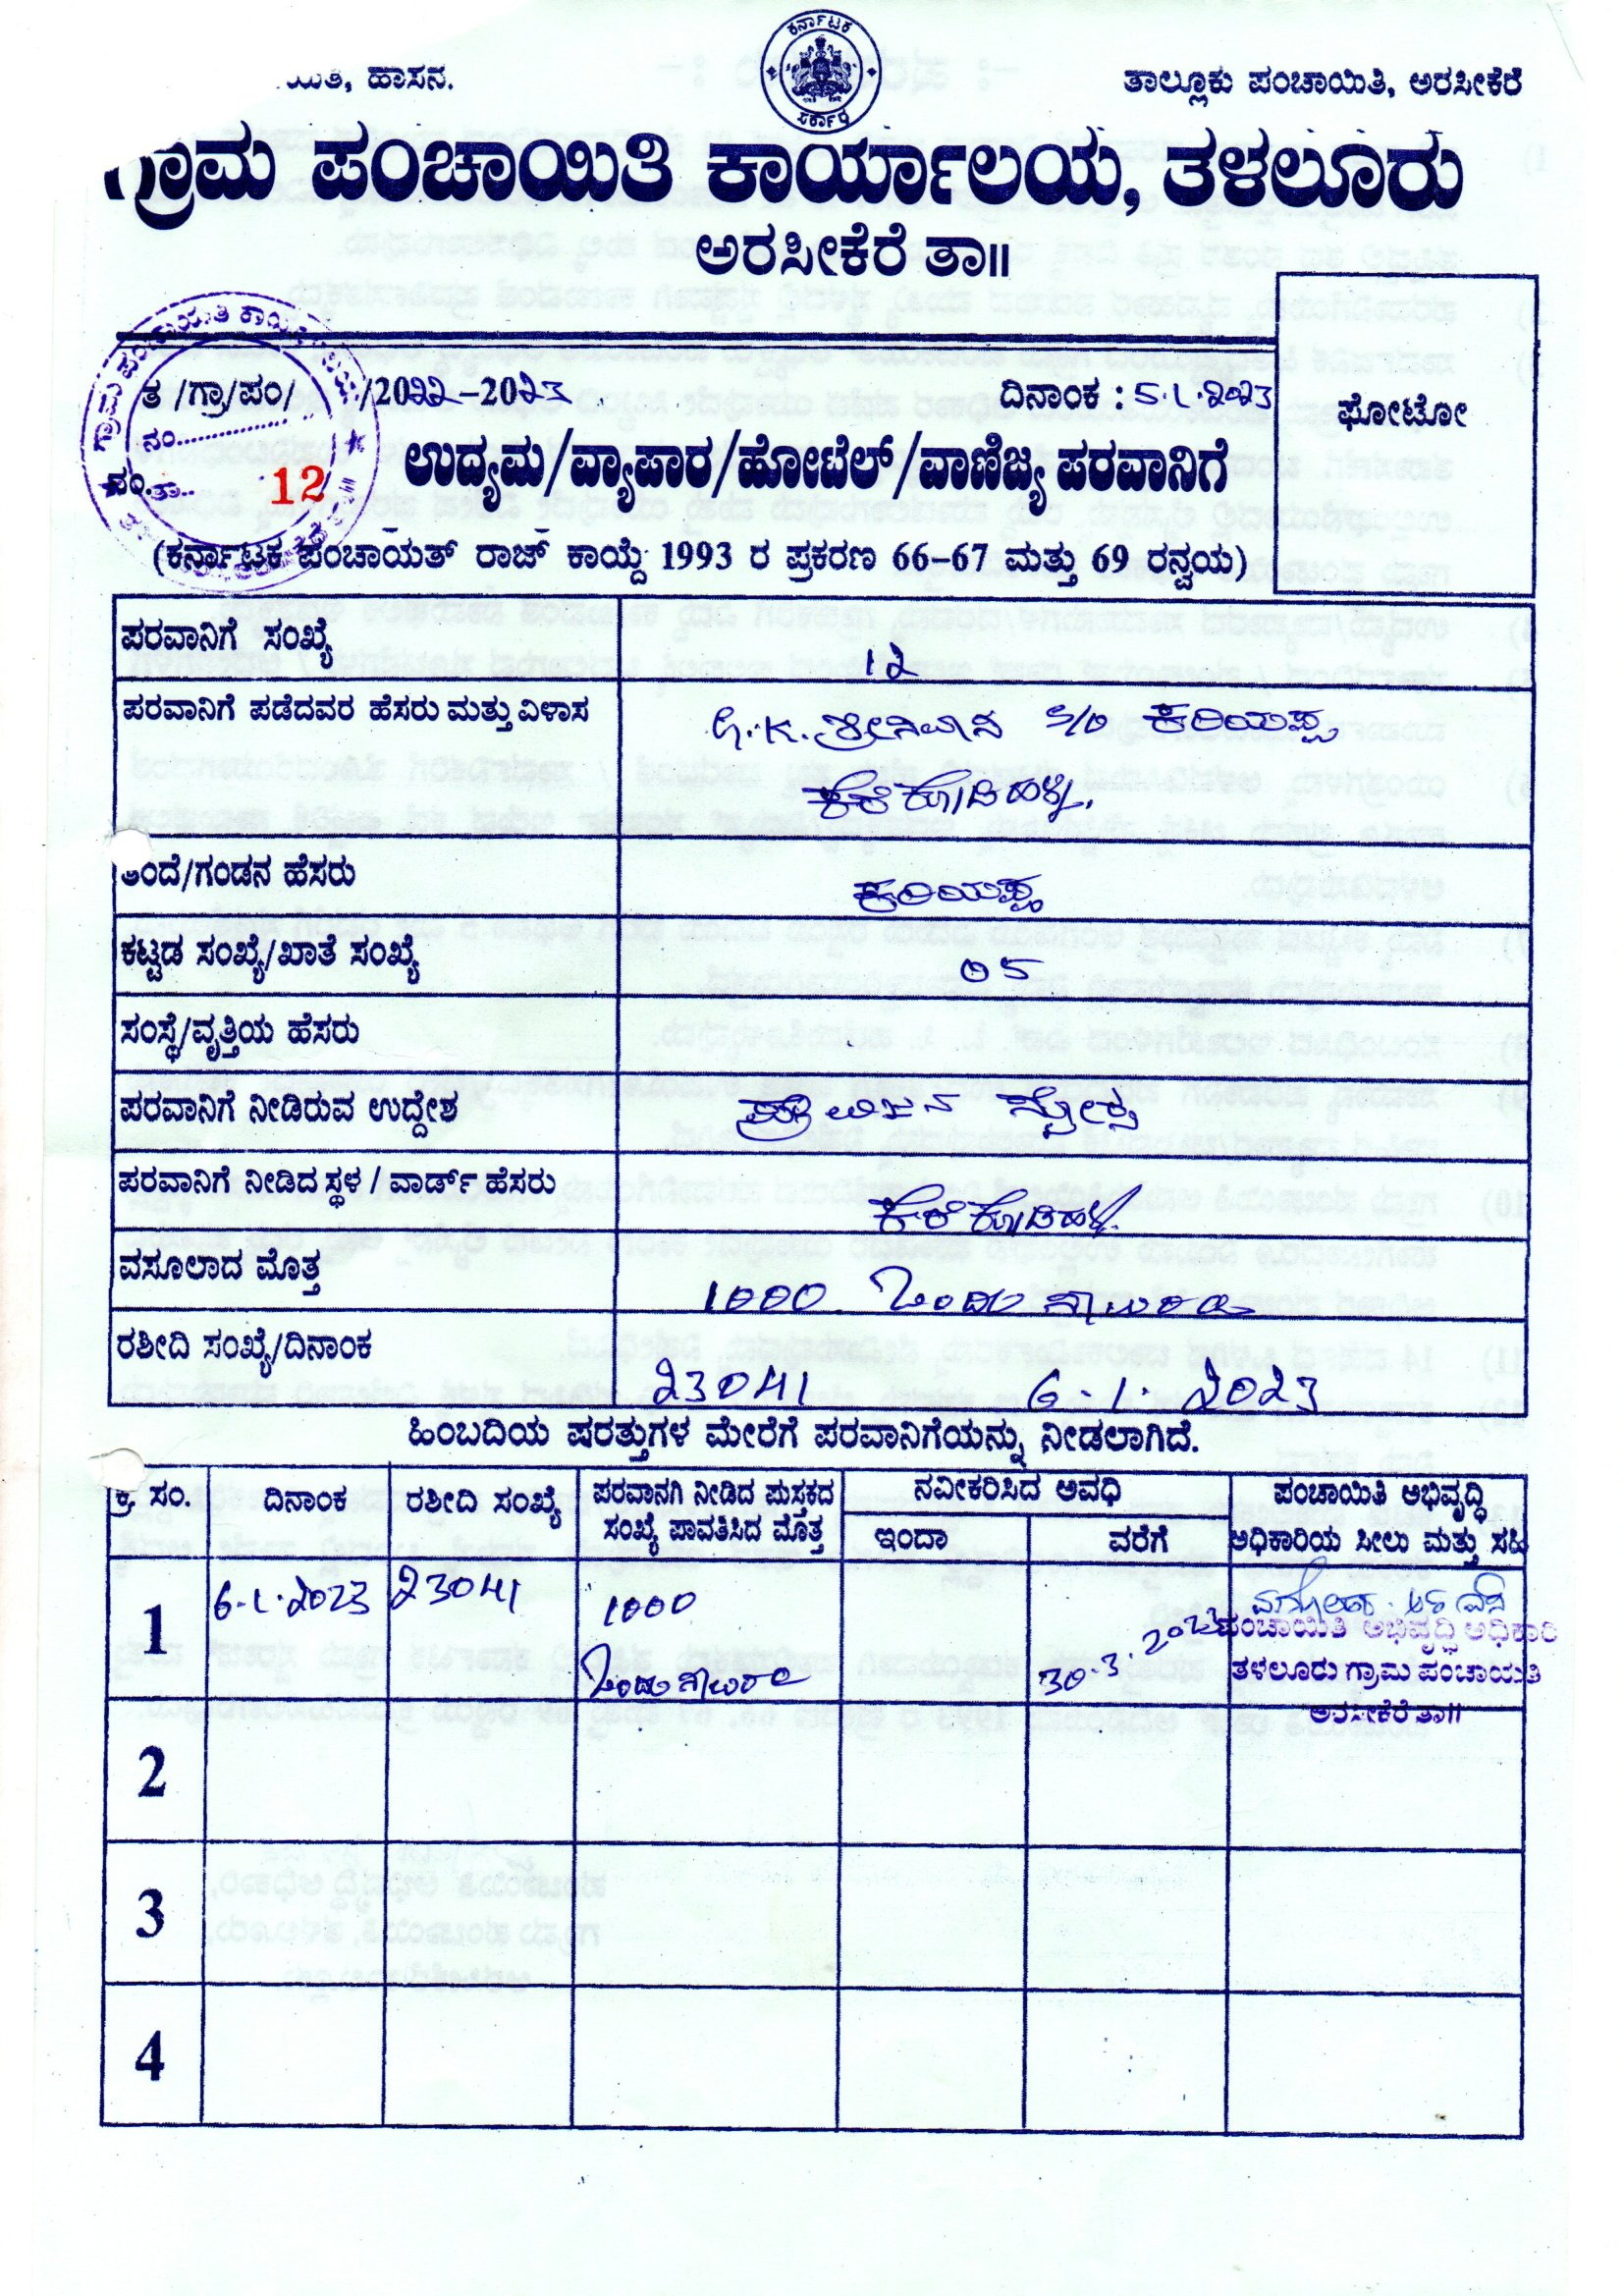 ಕರ್ನಾಟಕ
ಸರ್ಕಾರ
ಹಾಸನ.
ತಾಲ್ಲೂಕು ಪಂಚಾಯಿತಿ, ಅರಸೀಕೆರೆ
ಗ್ರಾಮ ಪಂಚಾಯಿತಿ ಕಾರ್ಯಾಲಯ, ತಳಲೂರು
ಅರಸೀಕೆರೆ ತಾ॥
ತ /ಗ್ರಾ/ಪಂ/ /2022-2023
ದಿನಾಂಕ : 5.1.2023
ಫೋಟೋ
ನಂ..............
ನಂ.ತಾ.. 12
ಉದ್ಯಮ/ವ್ಯಾಪಾರ/ಹೋಟೆಲ್/ವಾಣಿಜ್ಯ ಪರವಾನಿಗೆ
(ಕರ್ನಾಟಕ ಪಂಚಾಯತ್ ರಾಜ್ ಕಾಯ್ದೆ 1993 ರ ಪ್ರಕರಣ 66-67 ಮತ್ತು 69 ರನ್ವಯ)
ಪರವಾನಿಗೆ ಸಂಖ್ಯೆ 12
ಪರವಾನಿಗೆ ಪಡೆದವರ ಹೆಸರು ಮತ್ತು ವಿಳಾಸ G.K. ಶ್ರೀನಿವಾಸ S/O ಕರಿಯಪ್ಪ
ಕೆರೆಕೋಡಿಹಳ್ಳಿ.
ತಂದೆ/ಗಂಡನ ಹೆಸರು ಕರಿಯಪ್ಪ
ಕಟ್ಟಡ ಸಂಖ್ಯೆ/ಖಾತೆ ಸಂಖ್ಯೆ 05
ಸಂಸ್ಥೆ/ವೃತ್ತಿಯ ಹೆಸರು
ಪರವಾನಿಗೆ ನೀಡಿರುವ ಉದ್ದೇಶ
ಪರವಾನಿಗೆ ನೀಡಿದ ಸ್ಥಳ / ವಾರ್ಡ್ ಹೆಸರು ಕೆರೆಕೋಡಿಹಳ್ಳಿ.
ವಸೂಲಾದ ಮೊತ್ತ 1000. ಒಂದು ಸಾವಿರರೂ
ರಶೀದಿ ಸಂಖ್ಯೆ/ದಿನಾಂಕ 23041 6.1.2023
ಹಿಂಬದಿಯ ಷರತ್ತುಗಳ ಮೇರೆಗೆ ಪರವಾನಿಗೆಯನ್ನು ನೀಡಲಾಗಿದೆ.
ಕ್ರ ಸಂ. ದಿನಾಂಕ ರಶೀದಿ ಸಂಖ್ಯೆ ಪರವಾನಗಿ ನೀಡಿದ ಪುಸ್ತಕದ ಸಂಖ್ಯೆ ಪಾವತಿಸಿದ ಮೊತ್ತ ನವೀಕರಿಸಿದ ಅವಧಿ ಪಂಚಾಯಿತಿ ಅಭಿವೃದ್ಧಿ ಅಧಿಕಾರಿಯ ಸೀಲು ಮತ್ತು ಸಹಿ
ಇಂದಾ ವರೆಗೆ
1 6.1.2023 23041 1000
ಒಂದು ಸಾವಿರರೂ 30.3.2023
ಪಂಚಾಯಿತಿ ಅಭಿವೃದ್ಧಿ ಅಧಿಕಾರಿ
ತಳಲೂರು ಗ್ರಾಮ ಪಂಚಾಯಿತಿ
ಅರಸೀಕೆರೆ ತಾ॥
2
3
4